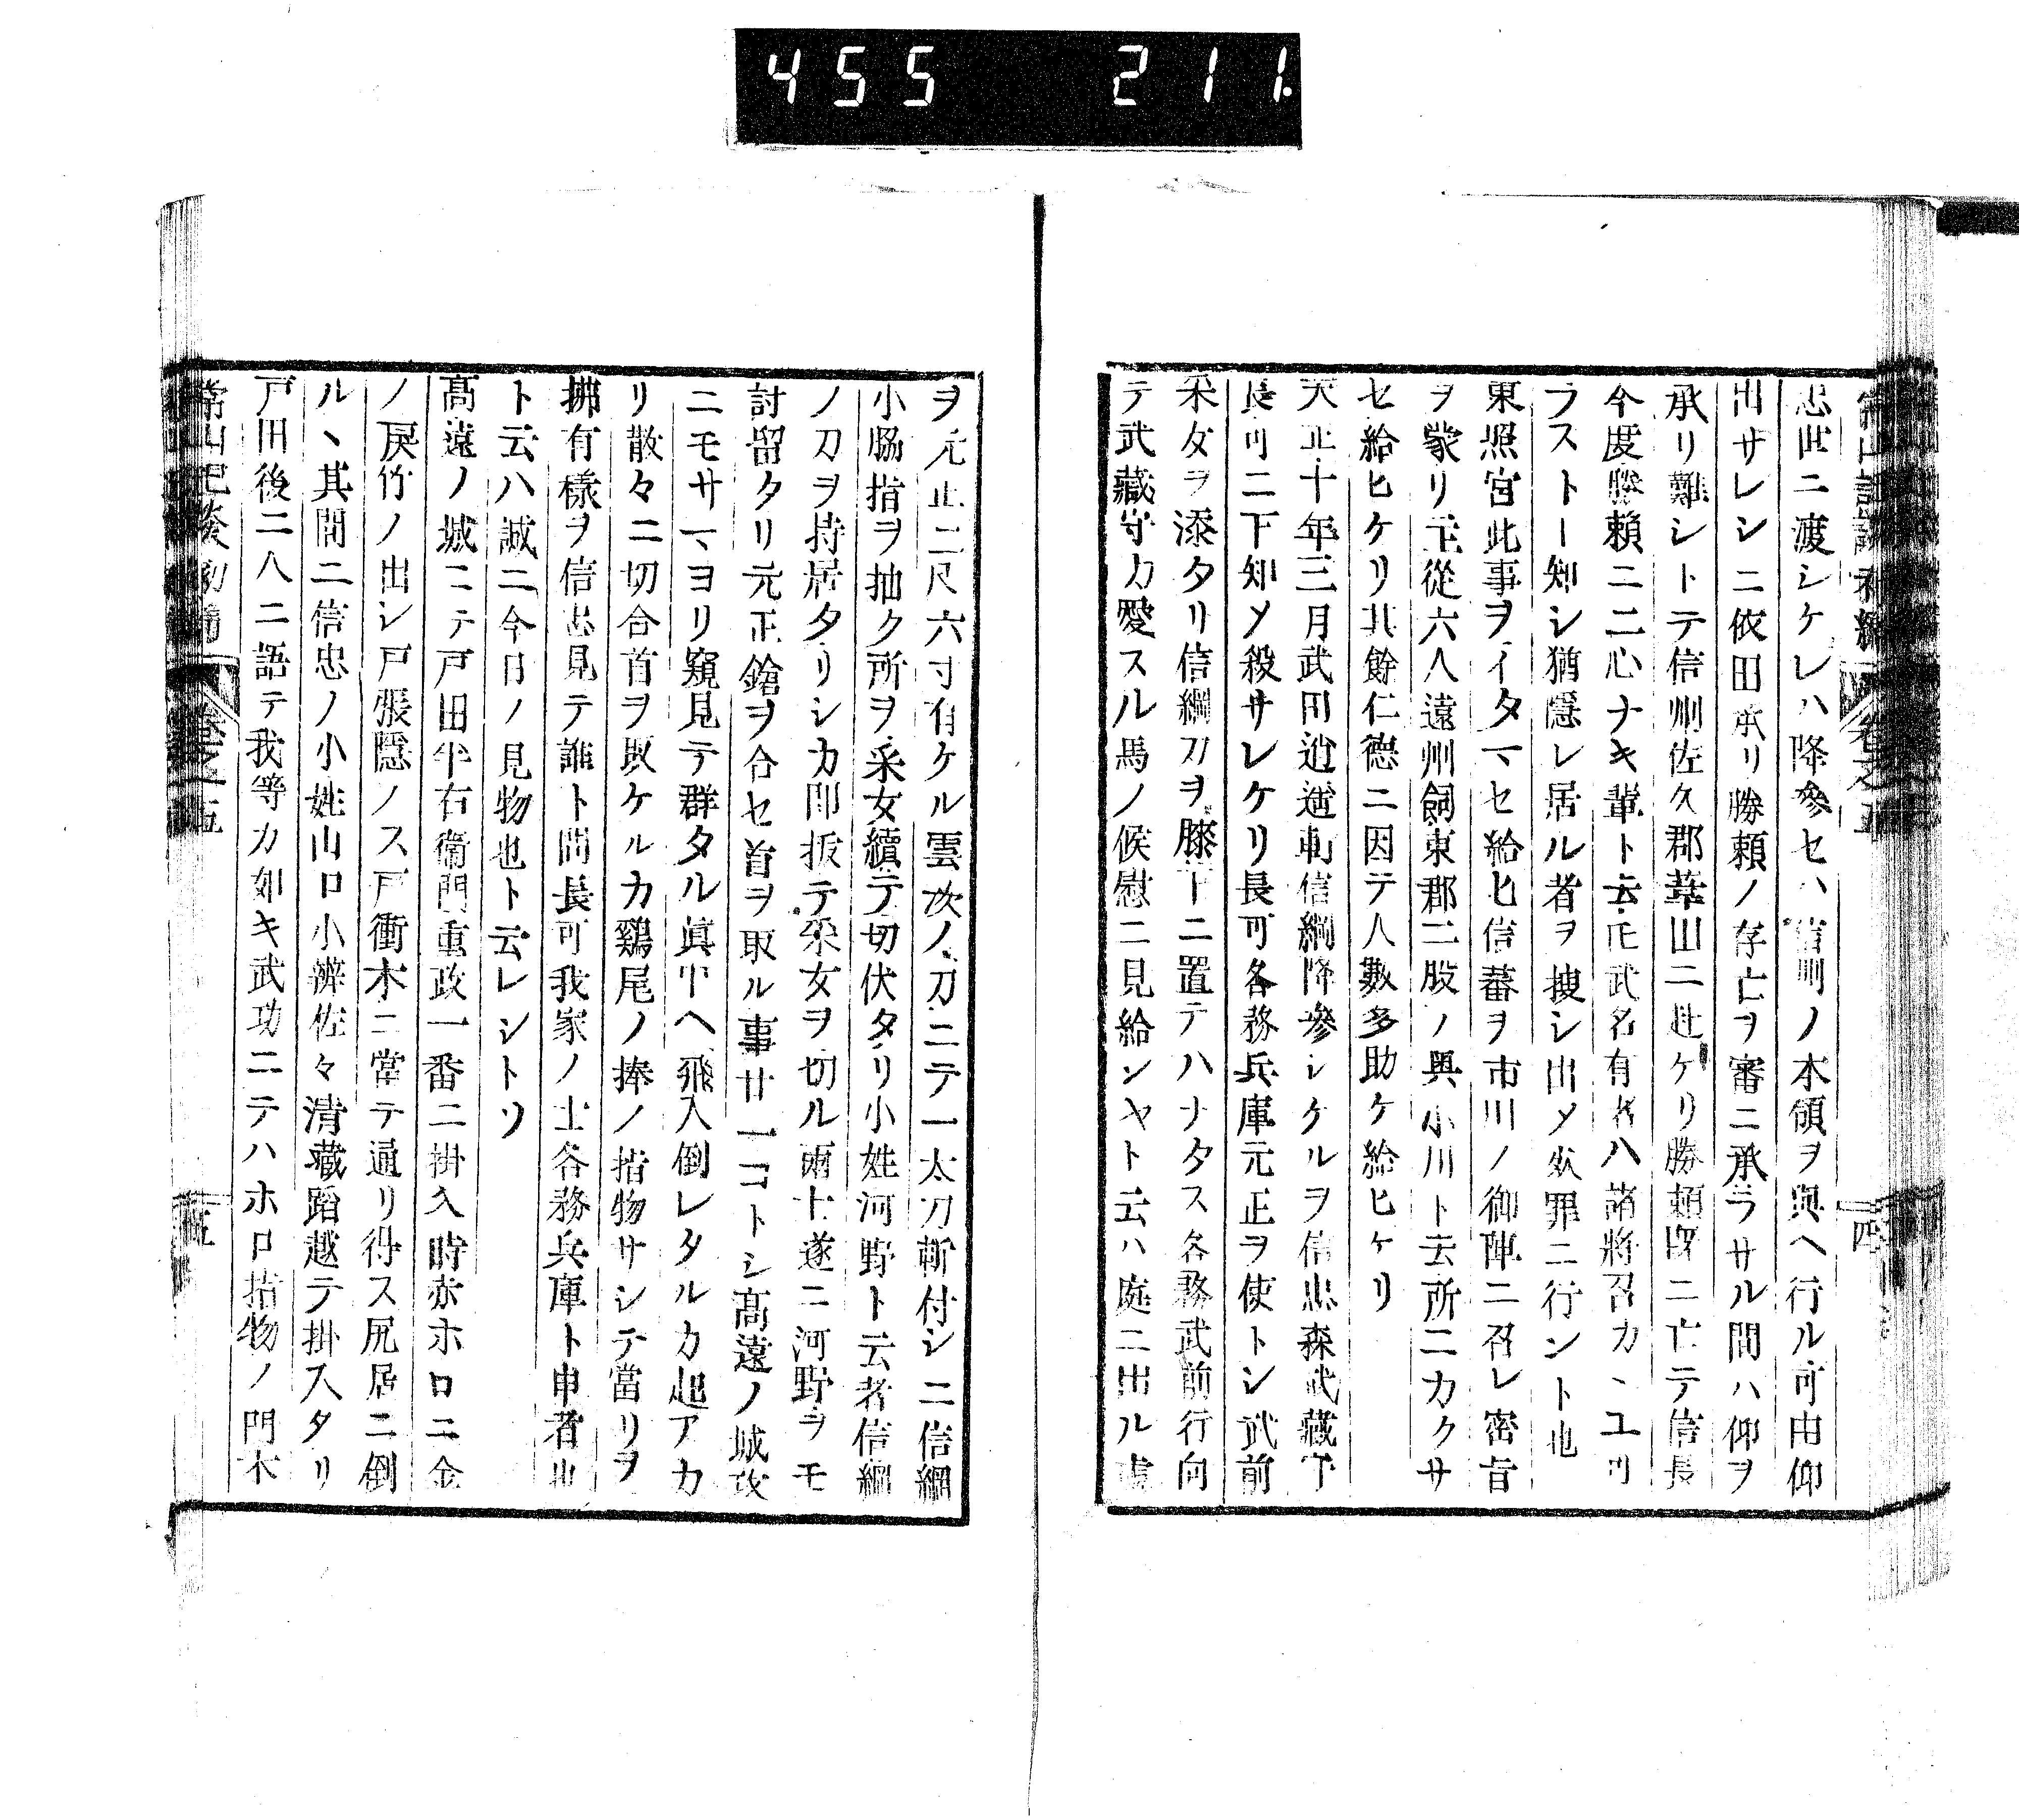 455 211.
忠世ニ渡シケレハ降參セハ信州ノ本領ヲ與ヘ行ル可由仰
出サレシニ依田承リ勝頼ノ存亡ヲ審ニ承ラサル間ハ仰ヲ
承リ難シトテ信州佐久郡葦山ニ赴ケリ勝頼既ニ亡テ信長
今度勝頼ニ二心ナキ輩ト云𪜈武名有者ハ諸將召カヽユ可
ラスト一知シ猶隱レ居ル者ヲ搜シ出メ死罪ニ行ント也
東照宮此事ヲイタマセ給ヒ信蕃ヲ市川ノ御陣ニ召レ密旨
ヲ蒙リ主從六人遠州飼東郡二股ノ奧小川ト云所ニカクサ
セ給ヒケリ其餘仁德ニ因テ人數多助ケ給ヒケリ
天正十年三月武田逍遙軒信綱降參シケルヲ信忠森武藏守
長可ニ下知メ殺サレケリ長可各務兵庫元正ヲ使トシ武前
采女ヲ添タリ信綱刀ヲ膝下ニ置テハナタス各務武前行向
テ武藏守カ愛スル馬ノ候慰ニ見給ンヤト云ハ庭ニ出ル處
ヲ元正二尺六寸有ケル雲次ノ刀ニテ一太刀斬付シニ信綱
小脇指ヲ抽ク所ヲ采女續テ切伏タリ小姓河野ト云者信綱
ノ刀ヲ持居タリシカ即抜テ采女ヲ切ル兩士遂ニ河野ヲモ
討留タリ元正鎗ヲ合セ首ヲ取ル事廿一コトシ髙遠ノ城攻
ニモサマヨリ窺見テ群タル眞中ヘ飛入倒レタルカ起アカ
リ散々ニ切合首ヲ取ケルカ鷄尾ノ捧ノ指物サシテ當リヲ
拂有樣ヲ信忠見テ誰ト問長可我家ノ士各務兵庫ト申者也
ト云ハ誠ニ今日ノ見物也ト云レシトソ
髙遠ノ城ニテ戸田半右衞門重政一番ニ掛入時赤ホロニ金
ノ戻竹ノ出シ戸張隱ノス戸衝木ニ當テ通リ得ス尻居ニ倒
ルヽ其間ニ信忠ノ小姓山口小辨佐々清藏蹈越テ掛入タリ
戸田後ニ人ニ語テ我等カ如キ武功ニテハホロ指物ノ門木